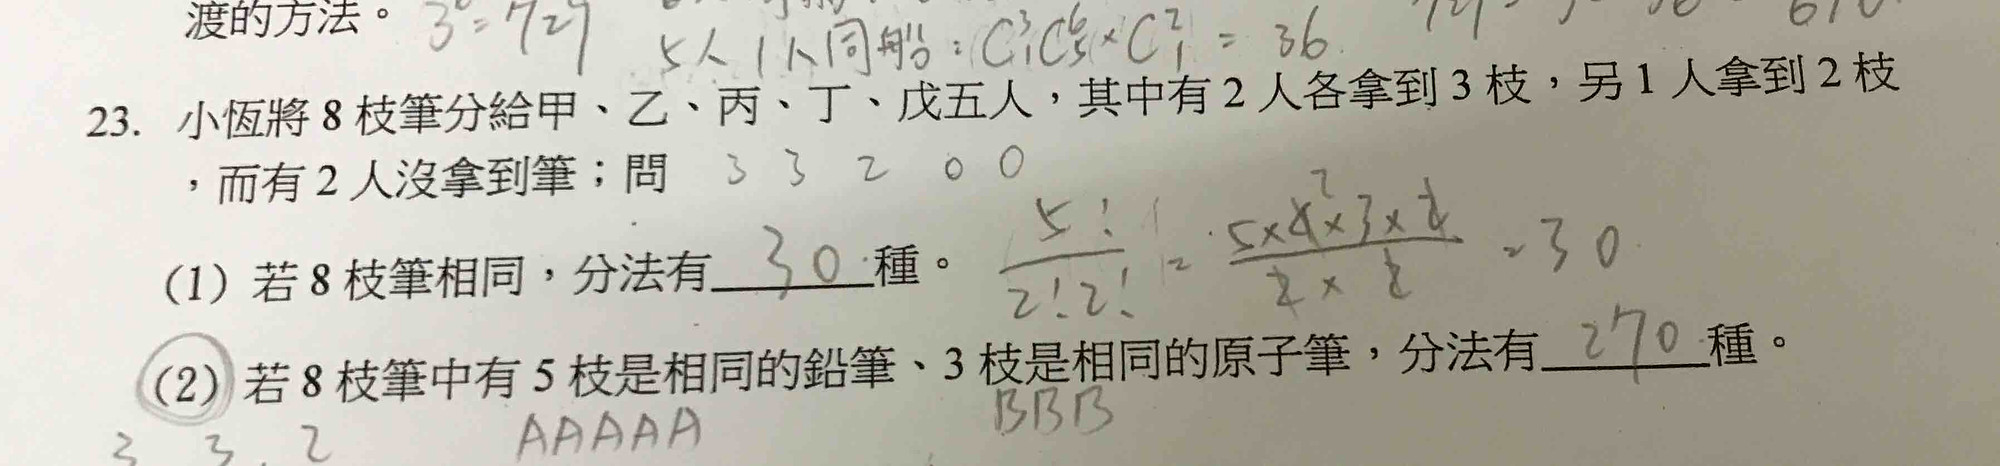 渡的方法。 3⁶=729
5人1人同船：C³₁C⁶₅×C²₁ = 36
23. 小恆將8枝筆分給甲、乙、丙、丁、戊五人，其中有2人各拿到3枝，另1人拿到2枝
，而有2人沒拿到筆；問 3 3 2 0 0
(1) 若8枝筆相同，分法有 30 種。 5!/2!2! = 5×4×3×2/2×2 = 30
(2) 若8枝筆中有5枝是相同的鉛筆、3枝是相同的原子筆，分法有 270 種。
3 3. 2 AAAAA BBB